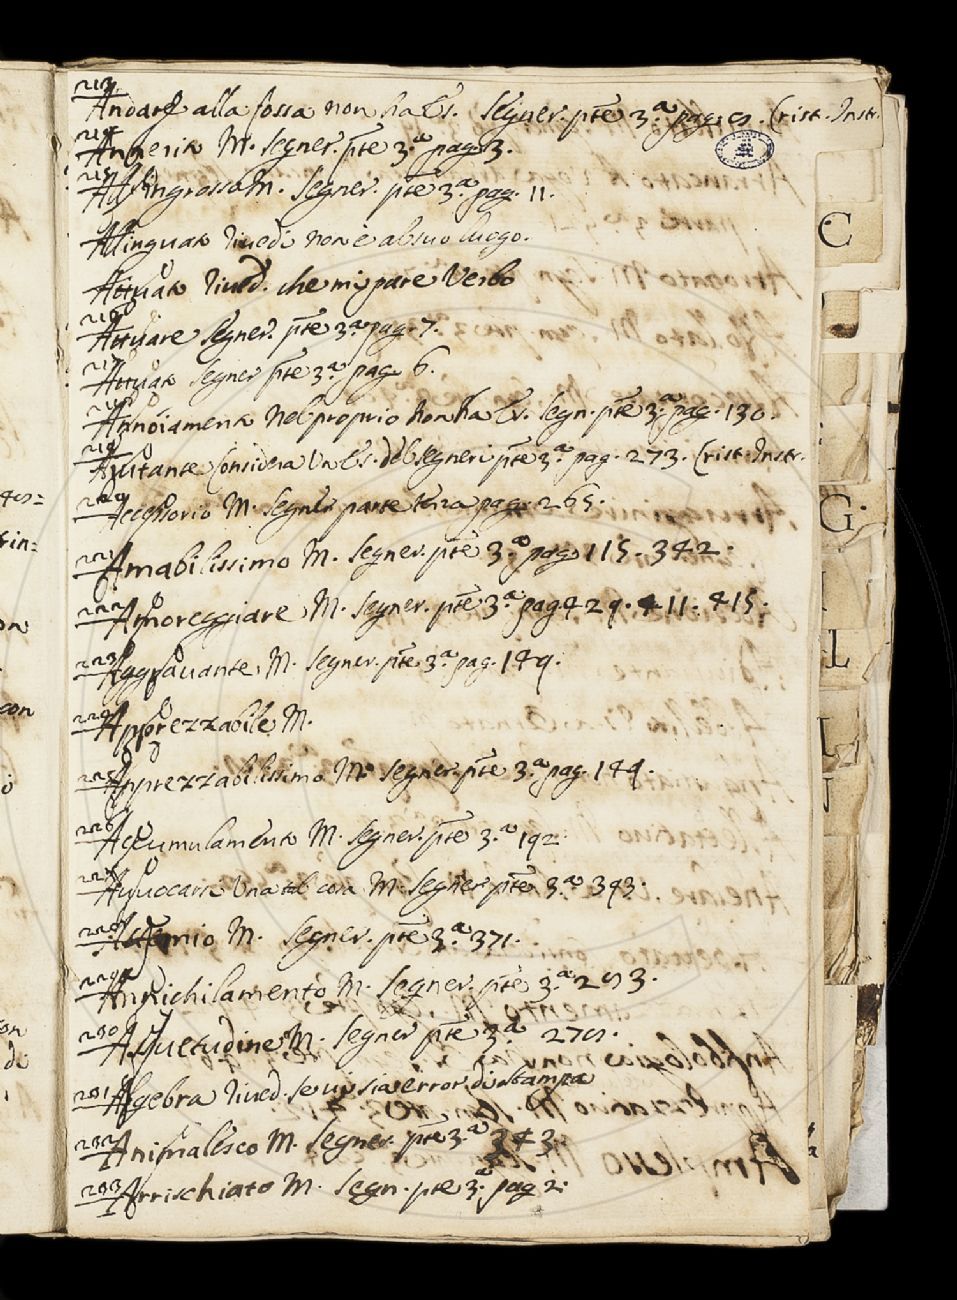 213
Andare alla fossa non ha Es. Segner. pte 3.a pag. Crist. Instr.
214
M. Segner. pte 3.a pag. 3.
215
All'ingrosso M. Segner. pte 3.a pag. 11.
rivedi non è al suo luogo.
Attuato rived. che mi pare Verbo
216
Attuare Segner. pte 3.a pag. 7.
217
Attuato Segner pte 3.a pag. 6.
218
Annoiamento nel proprio non ha Es. Segn. pte 3.a pag. 130.
219
Ajutante Considera Un Es. del Segneri pte 3.a pag. 273. Crist. Instr.
220
Accessorio M. Segner parte terza pag. 265.
221
Amabilissimo M. Segner. pte 3.a pag. 115. 342.
222
Amoreggiare M. Segner. pte 3.a pag. 429. 411. 415.
223
Aggravante M. Segner. pte 3.a pag. 149.
224
Apprezzabile M.
225
Apprezzabilissimo M. Segner. pte 3.a pag. 149.
226
Accumulamento M. Segner. pte 3.a 192
227
Una tal cosa M. Segner. pte 3.a 343.
228
M. Segner. pte 3.a 371.
229
Annichilamento M. Segner. pte 3.a 293.
230
M. Segner pte 3.a
231
Algebra rived. se vi sia error di stampa
232
Animalesco M. Segner. pte 3.a 343
233
Arrischiato M. Segn. pte 3.a pag 2.
C
G.
L